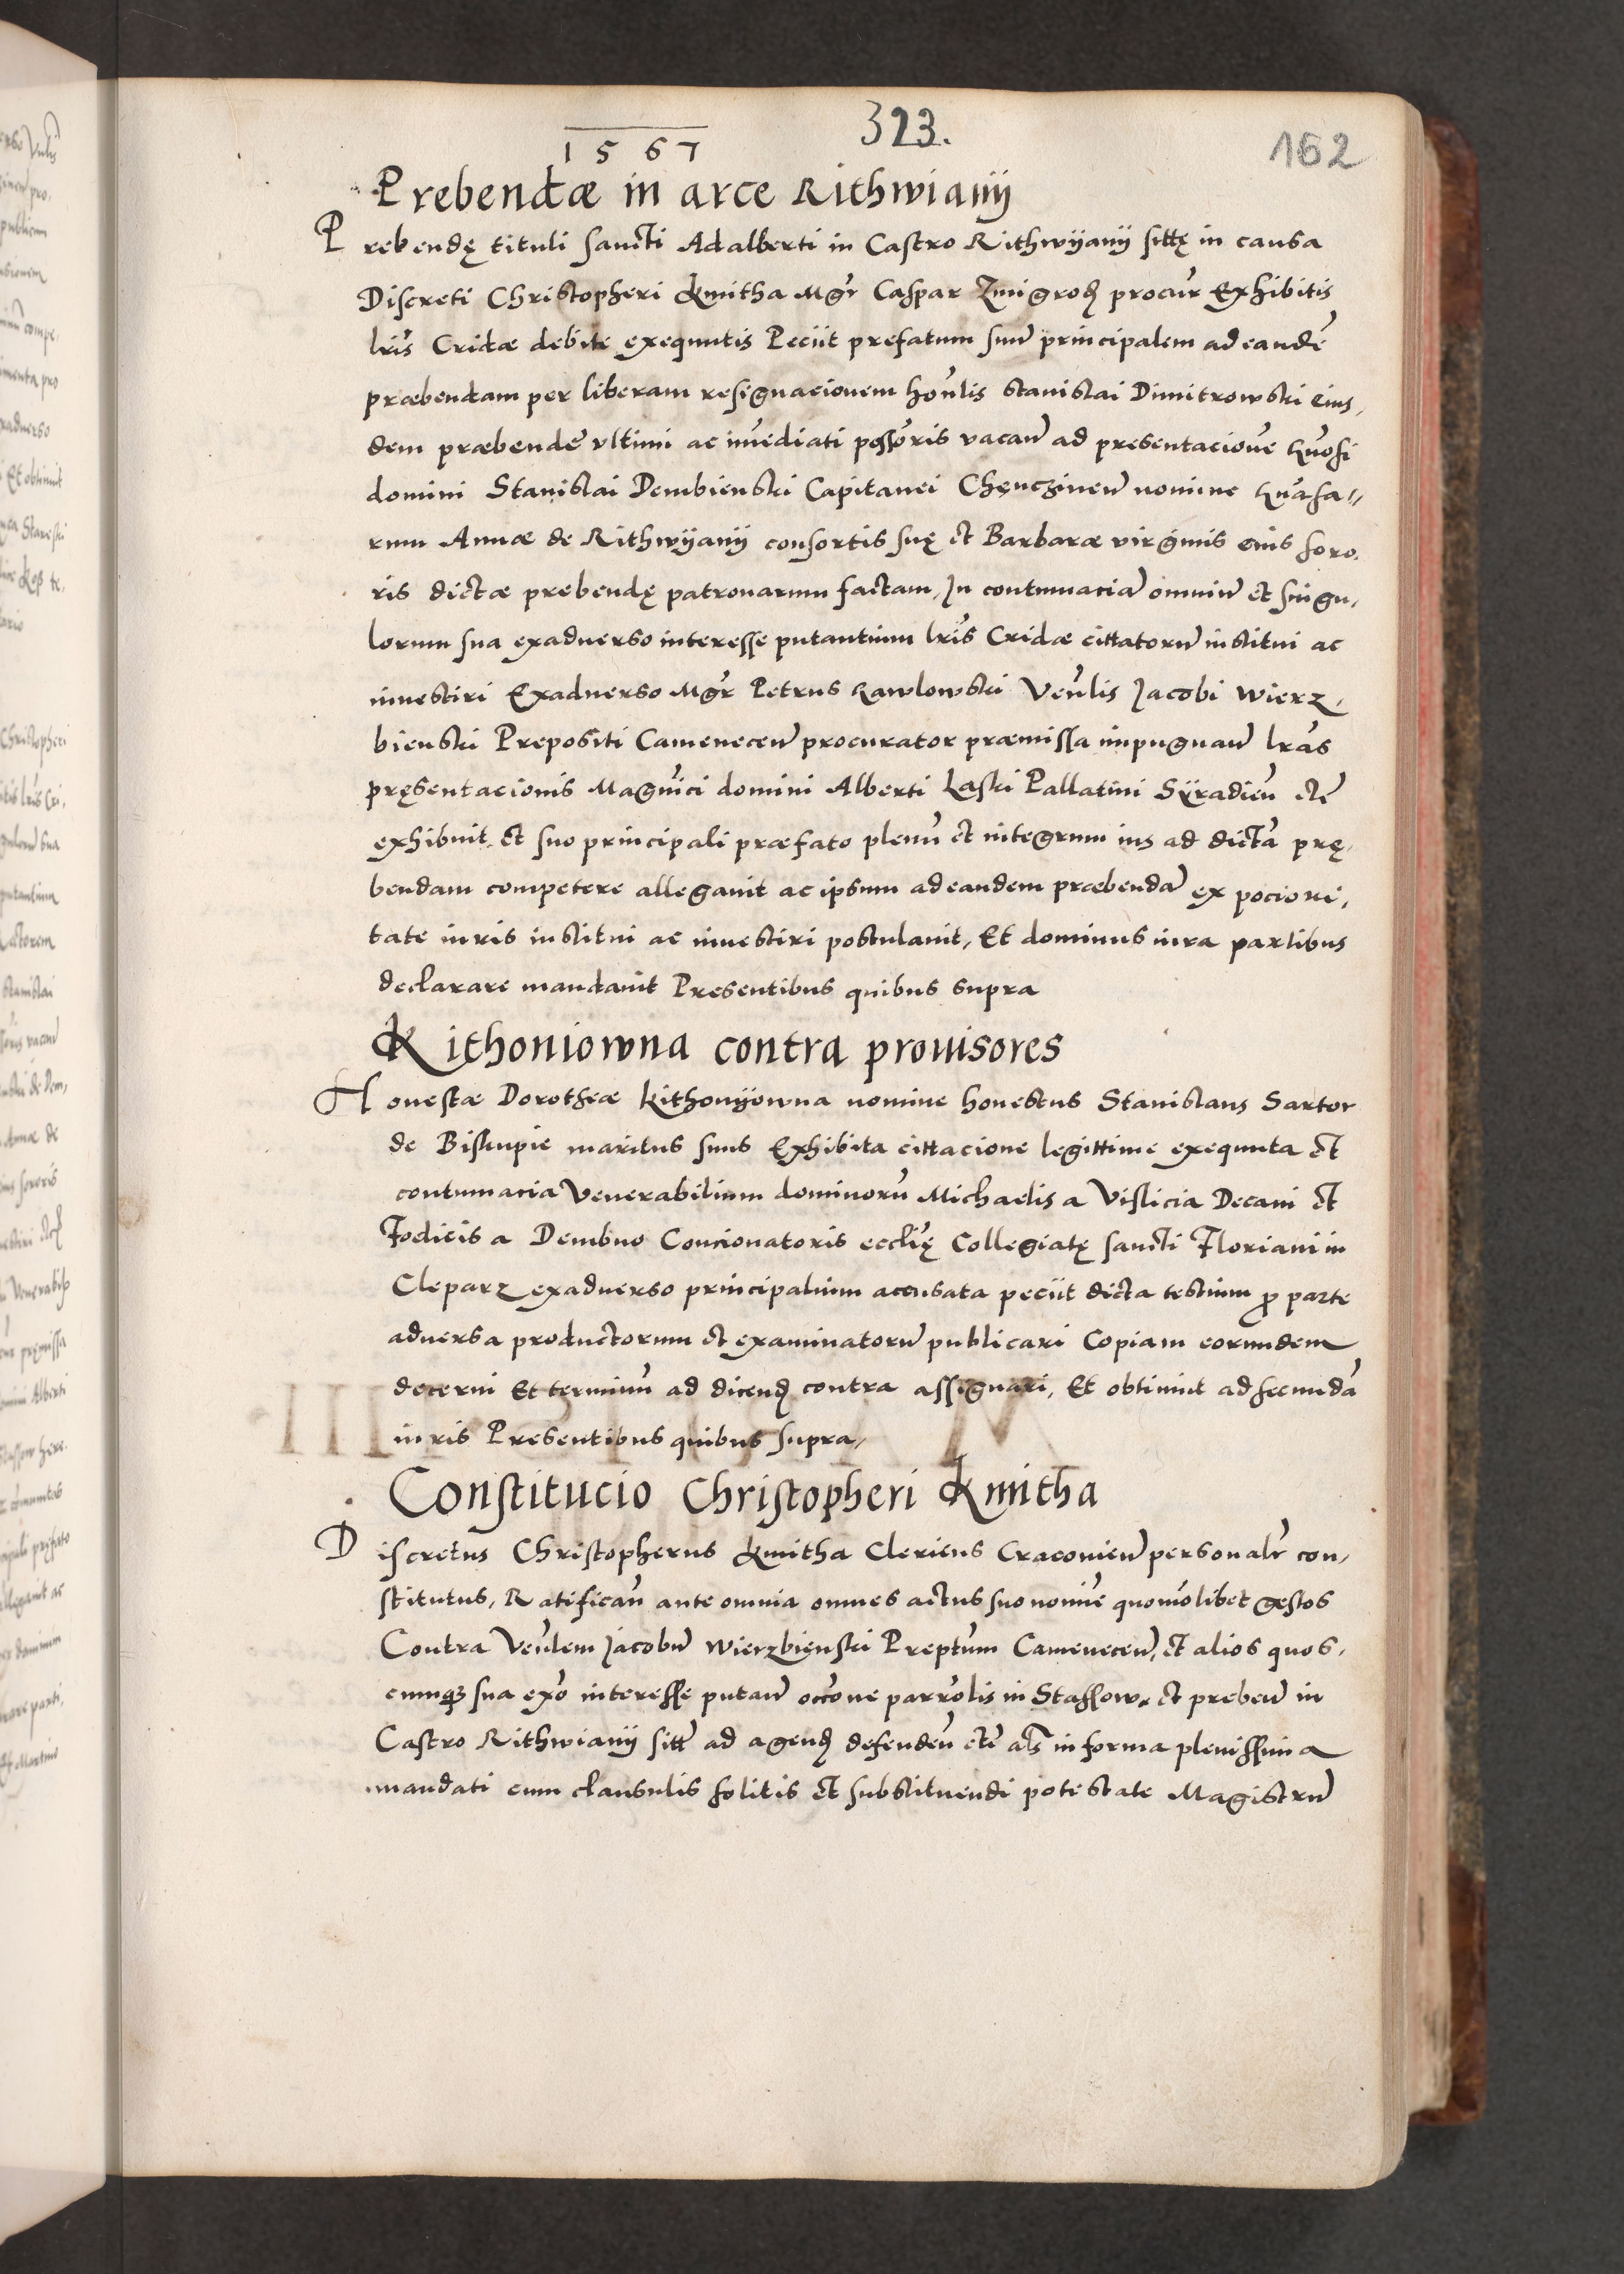 1567
323.
162
Prebendæ in arce Rithwianij
Prebendę tituli sancti Adalberti in Castro Rithwÿanij sittę in causa
Discreti Christopheri Kmitha Mgr̃ Caspar Zmigrod procur̃ Exhibitis
lr̃is Cridæ debite exequutis Peciit prefatum suũ principalem ad eandẽ
præbendam per liberam resignacionem hon̄lis Stanislai Dimitrowski eius,
dem præbendẽ vltimi ac im̃ediati poss̃oris vacan̄ ad presentacionẽ Gñosi
domini Stanislai Dembienski Capitanei Chęncz̨inen̄ nomine Gña̅sa//
rum Annæ de Rithwÿanij consortis suę et Barbaræ virginis eius soro,
ris dictæ prebendę patronarum factam, In contumaciã omniũ et singu,
lorum sua exaduerso interesse putantium lr̃is Cridæ cittatorũ institui ac
inuestiri Exaduerso Mgr̃ Petrus Kawlowski Ven̄lis Jacobi Wierz,
bienski Prepositi Camenecen̄ procurator præmissa impugnan̄ lr̃as
pręsentacionis Magñici domini Alberti Laski Pallatini Sÿradien̄ etc̃
exhibuit et suo principali præfato plenũ et integrum ius ad dictã prę,
bendam competere allegauit ac ipsum ad eandem præbendã ex pociori,
tate iuris institui ac inuestiri postulauit, Et dominus iura partibus
declarare mandauit Presentibus quibus supra
Kithoniowna contra prouisores
Honestæ Dorotheæ Kithonÿowna nomine honestus Stanislaus Sartor
de Biskupie maritus suus Exhibita cittacione legittime exequuta et
contumacia Venerabilium dominorũ Michaelis a Vislicia Decani et
Fodicis a Dembno Concionatoris eccl̃ię Collegiatę sancti Floriani in
Cleparz exaduerso principalium accusata peciit dicta testium ꝓ parte
aduersa productorum et examinatorũ publicari Copiam eorundem
decerni Et terminũ ad dicend̃ contra assignari, Et obtinuit ad secundã
iuris Presentibus quibus supra,
Constitucio Christopheri Kmitha
Discretus Christopherus Kmitha Clericus Cracouien̄ personalr̃ con,
stitutus, Ratifican̄ ante omnia omnes actus suo noiñe quomõlibet gestos
Contra Ven̄lem Jacobũ Wierzbięnski Preptũm Camenecen̄, et alios quos,
cumqꝫ sua exõ interesse putan̄ occõne parr̃olis in Stassow, et preben̄ in
Castro Rithwianij sitt̃ ad agend̃ defenden̄ etc̃ als̃ in forma plenissima
mandati cum clausulis solitis et substituendi potestate Magistrũ